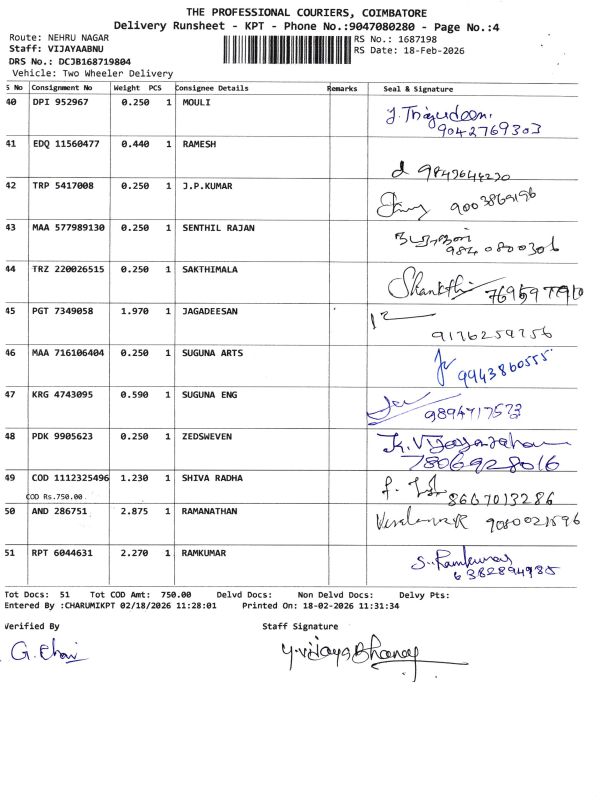 THE PROFESSIONAL COURIERS, COIMBATORE
Delivery Runsheet - KPT - Phone No.:9047080280 - Page No.:4
Route: NEHRU NAGAR RS No.: 1687198
Staff: VIJAYAABNU RS Date: 18-Feb-2026
DRS No.: DCJB168719804
Vehicle: Two Wheeler Delivery
S No Consignment No Weight PCS Consignee Details Remarks Seal & Signature
40 DPI 952967 0.250 1 MOULI
9042769303
41 EDQ 11560477 0.440 1 RAMESH
42 TRP 5417008 0.250 1 J.P.KUMAR
9003869196
43 MAA 577989130 0.250 1 SENTHIL RAJAN
9840800306
44 TRZ 220026515 0.250 1 SAKTHIMALA
45 PGT 7349058 1.970 1 JAGADEESAN
9176259756
46 MAA 716106404 0.250 1 SUGUNA ARTS
9943860555
47 KRG 4743095 0.590 1 SUGUNA ENG
9894717573
48 PDK 9905623 0.250 1 ZEDSWEVEN
7806928016
49 COD 1112325496 1.230 1 SHIVA RADHA
COD Rs.750.00 8667013286
50 AND 286751 2.875 1 RAMANATHAN
9080021596
51 RPT 6044631 2.270 1 RAMKUMAR
S. Ramkumar
6382894985
Tot Docs: 51 Tot COD Amt: 750.00 Delvd Docs: Non Delvd Docs: Delvy Pts:
Entered By :CHARUMIKPT 02/18/2026 11:28:01 Printed On: 18-02-2026 11:31:34
Verified By Staff Signature